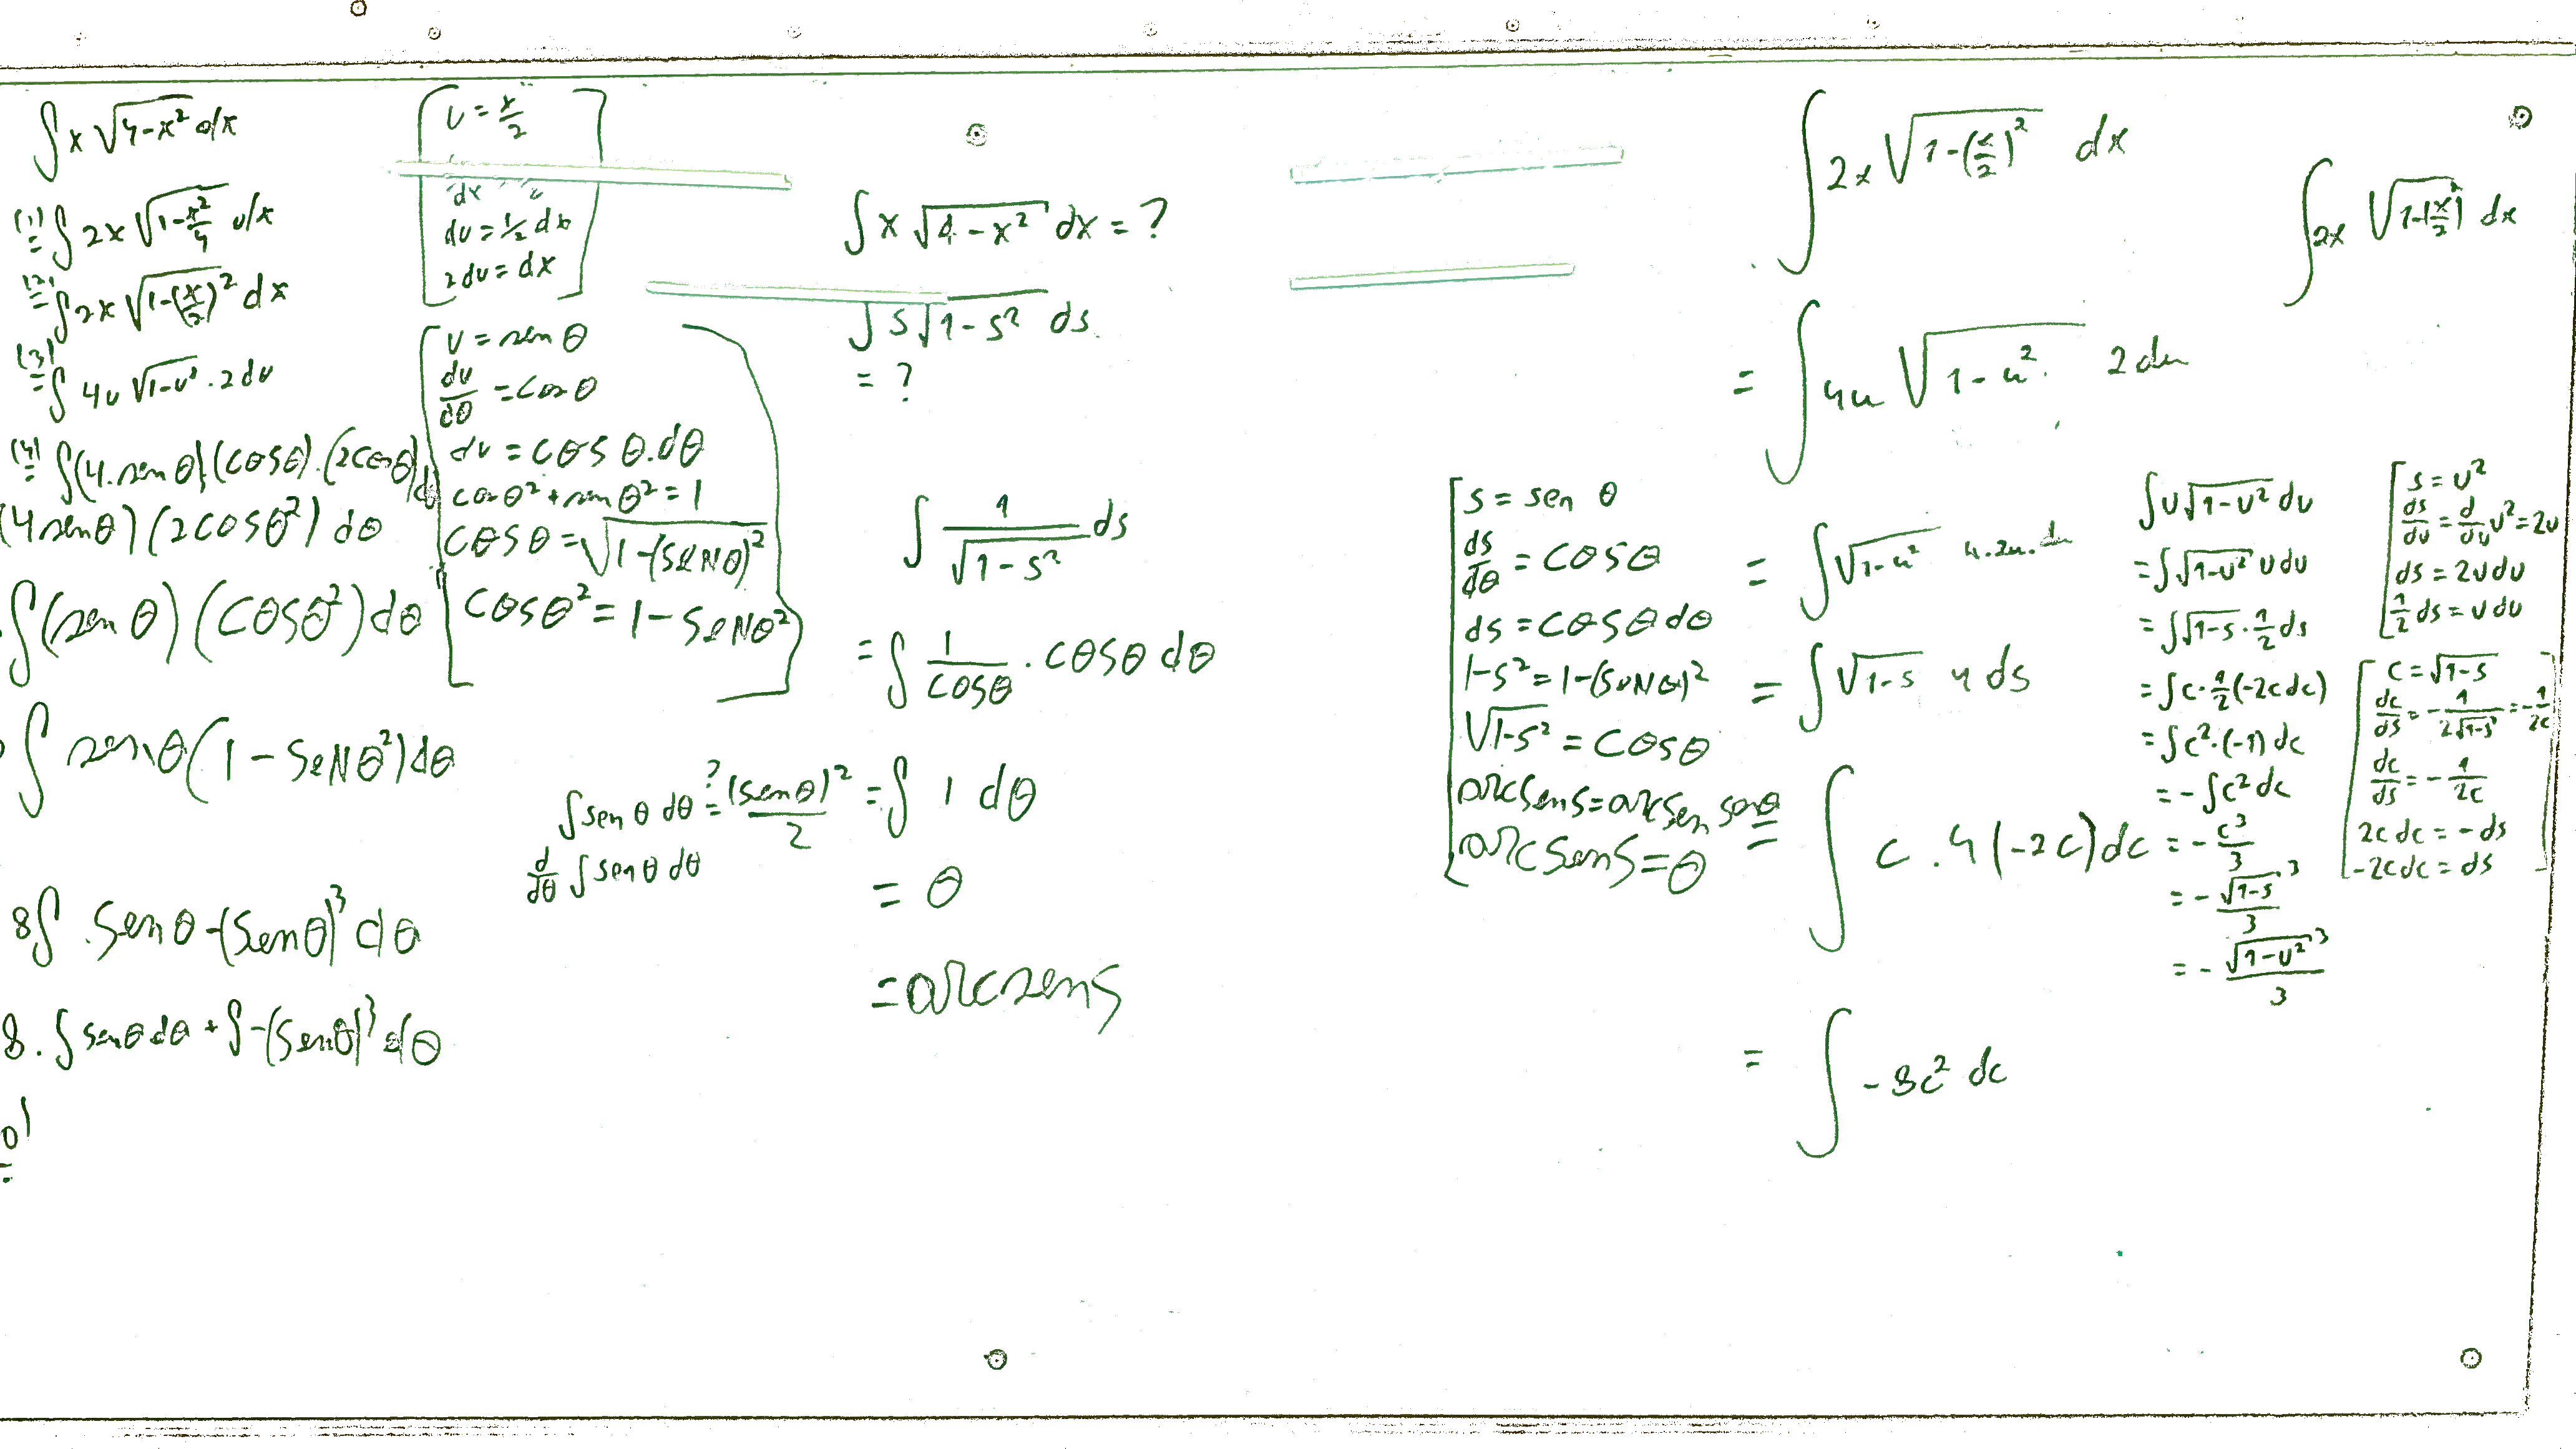 ∫ x √(4-x²) dx
(1) = ∫ 2x √(1-x²/4) dx
(2) = ∫ 2x √(1-(x/2)²) dx
(3) = ∫ 4u √(1-u²) · 2du
(4) = ∫ (4·sen θ)(cosθ)·(2cosθ) dθ
(4senθ)(2cosθ²) dθ
∫(sen θ)(cosθ²)dθ
∫ senθ(1-senθ²)dθ
8∫ senθ-(senθ)³ dθ
8·∫ senθ dθ + ∫-(senθ)³ dθ
u = x/2
dx
du = 1/2 dx
2du = dx
u = sen θ
du/dθ = cos θ
du = cosθ.dθ
cosθ² + senθ² = 1
cosθ = √(1-(senθ)²)
cosθ² = 1-senθ²
∫ sen θ dθ ?= (senθ)²/2
d/dθ ∫ senθ dθ
∫ x √(4-x²) dx = ?
∫ s √(1-s²) ds
= ?
∫ 1/√(1-s²) ds
= ∫ 1/cosθ · cosθ dθ
= ∫ 1 dθ
= θ
= arcsen s
s = sen θ
ds/dθ = cosθ
ds = cosθ dθ
1-s² = 1-(senθ)²
√(1-s²) = cosθ
arcsen s = arcsen senθ
arcsen s = θ
∫ 2x √(1-(x/2)²) dx
= ∫ 4u √(1-u²) 2du
= ∫ √(1-u²) 4·2u·du
= ∫ √(1-s) 4 ds
= ∫ c · 4(-2c)dc
= ∫ -8c² dc
∫ 2x √(1-(x/2)²) dx
∫ u√(1-u²) du
= ∫ √(1-u²) u du
= ∫ √(1-s) · 1/2 ds
= ∫ c · 1/2 (-2c dc)
= ∫ c² · (-1) dc
= - ∫ c² dc
= - c³/3
= - √(1-s)³/3
= - √(1-u²)³/3
s = u²
ds/du = d/du u² = 2u
ds = 2u du
1/2 ds = u du
c = √(1-s)
dc/ds = - 1/(2√(1-s)) = - 1/2c
dc/ds = - 1/2c
2c dc = - ds
-2c dc = ds